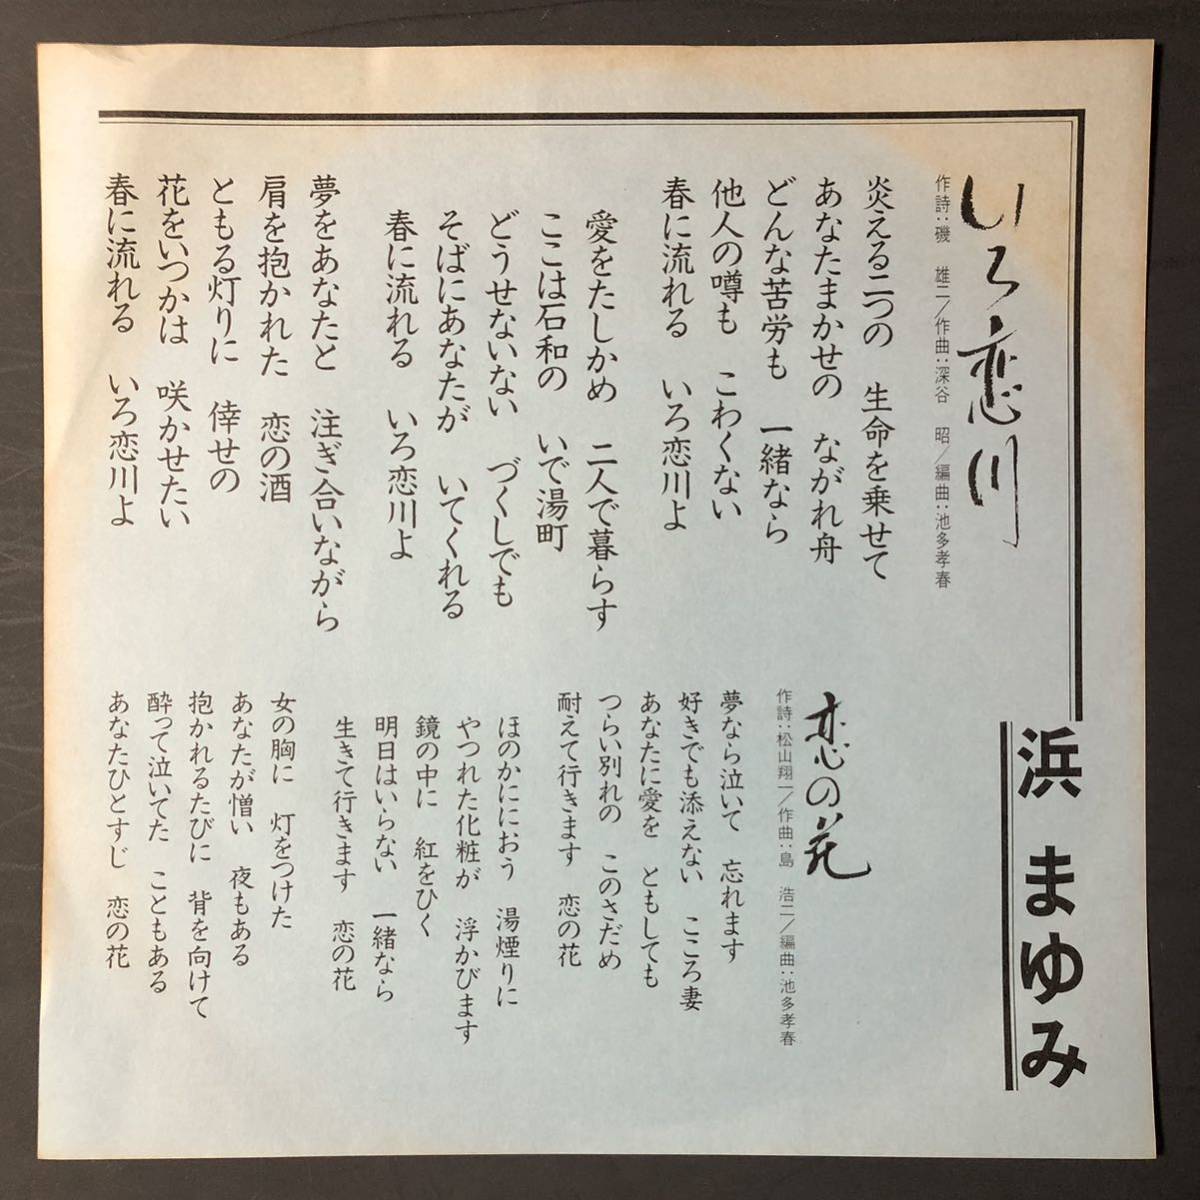 いろ恋川
作詩:磯 雄二/作曲:深谷 昭/編曲:池多孝春
炎える二つの 生命を乗せて
あなたまかせの ながれ舟
どんな苦労も 一緒なら
他人の噂も こわくない
春に流れる いろ恋川よ
愛をたしかめ 二人で暮らす
ここは石和の いで湯町
どうせないない づくしでも
そばにあなたが いてくれる
春に流れる いろ恋川よ
夢をあなたと 注ぎ合いながら
肩を抱かれた 恋の酒
ともる灯りに 倖せの
花をいつかは 咲かせたい
春に流れる いろ恋川よ
浜 まゆみ
恋の花
作詩:松山翔一/作曲:島 浩二/編曲:池多孝春
夢なら泣いて 忘れます
好きでも添えない こころ妻
あなたに愛を ともしても
つらい別れの このさだめ
耐えて行きます 恋の花
ほのかににおう 湯煙りに
やつれた化粧が 浮かびます
鏡の中に 紅をひく
明日はいらない 一緒なら
生きて行きます 恋の花
女の胸に 灯をつけた
あなたが憎い 夜もある
抱かれるたびに 背を向けて
酔って泣いてた こともある
あなたひとすじ 恋の花